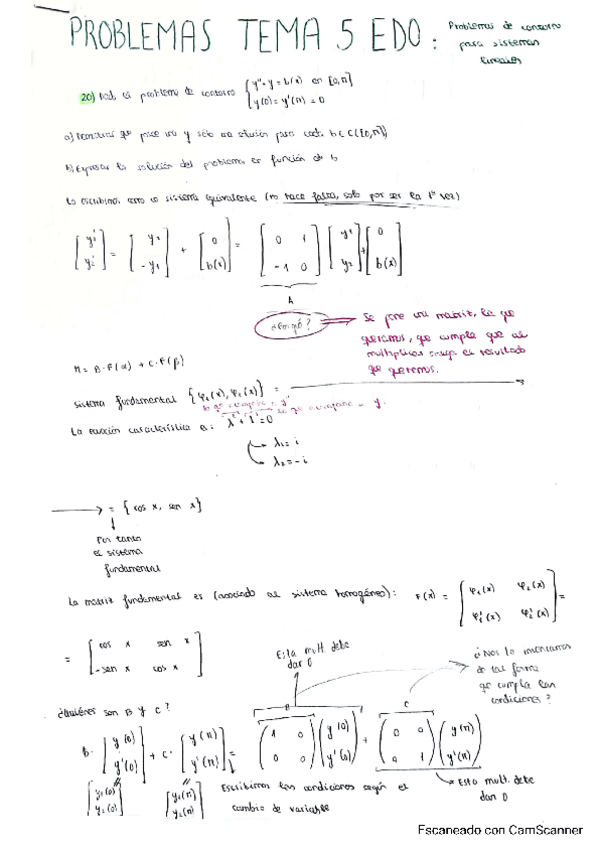 PROBLEMAS TEMA 5 EDO: Problemas de contorno
para sistemas
lineales
20) Dado el problema de contorno { y''+y = b(x) en [0,π]
y(0)=y'(π)=0
a) Demostrar que posee una y sólo una solución para cada b∈C([0,π])
b) Expresar la solución del problema en función de b
Lo escribimos como un sistema equivalente (no hace falta, solo por ser la 1ª vez)
[y₁' y₂'] = [y₂ -y₁] + [0 b(x)] = [0 1 -1 0] [y₁ y₂] + [0 b(x)]
A
¿Por qué? Se pone una matriz, la que
queramos, que cumpla que al
multiplicar salga el resultado
que queremos.
M = B·F(α) + C·F(β)
sistema fundamental {φ₁(x), φ₂(x)} =
La ecuación característica es: λ²+1=0
λ₁=i
λ₂=-i
= {cos x, sen x}
Por tanto
el sistema
fundamental
La matriz fundamental es (asociando al sistema homogéneo): F(x) = (φ₁(x) φ₂(x) φ₁'(x) φ₂'(x)) =
= [cos x sen x -sen x cos x]
Esta mult. debe
dar 0
¿Nos la inventamos
de tal forma
que cumpla las
condiciones?
¿Quiénes son B y C?
B C
B·[y(0) y'(0)] + C·[y(π) y'(π)] = (1 0 0 0)(y(0) y'(0)) + (0 0 0 1)(y(π) y'(π))
[y₁(0) y₂(0)] [y₁(π) y₂(π)]
Escribimos las condiciones según el
cambio de variable
Esta mult. debe
dar 0
Escaneado con CamScanner